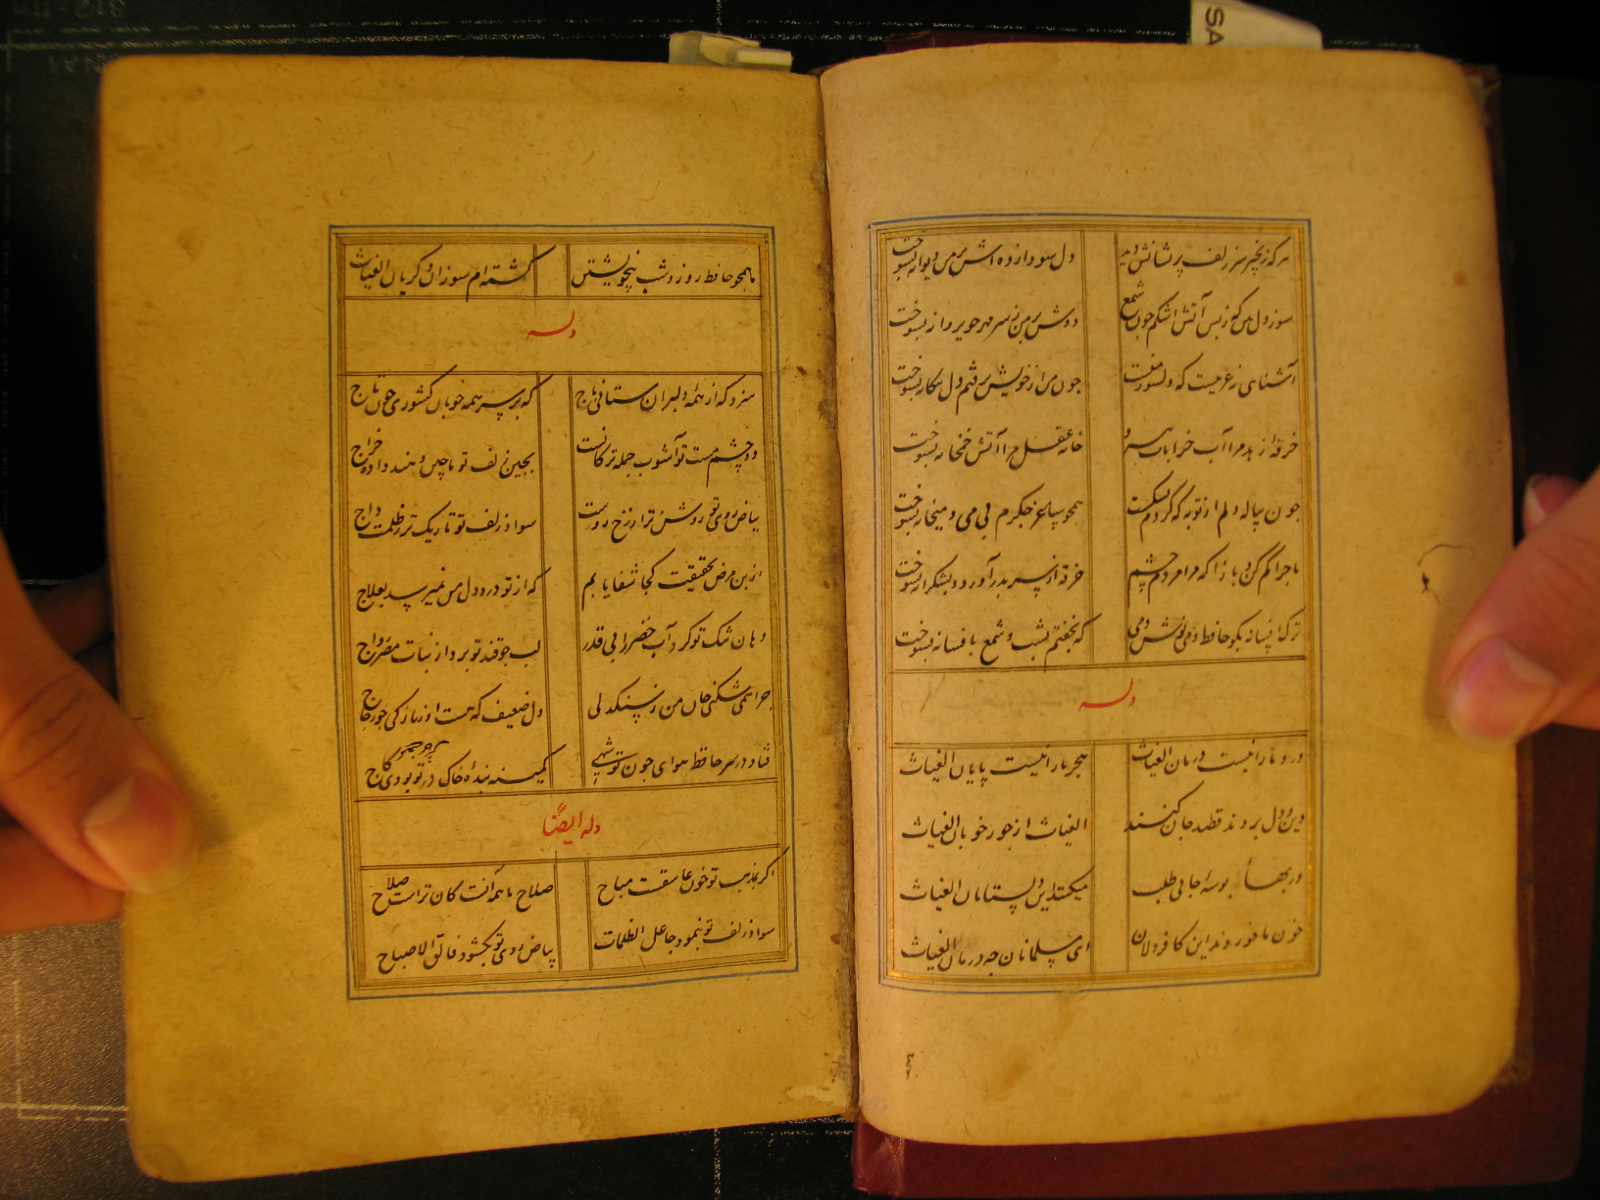 هر که زنجیر سر زلف پریشانش دید
دل سودازده اش بر من دیوانه بسوخت
سوز دل من که ز بس آتش اشکم چون شمع
دوش بر من ز سر مهر چو پروانه بسوخت
آشنای نه غریبست که دلسوز منست
چون من از خویش برفتم دل بیکانه بسوخت
خرقهٔ زهد مرا آب خرابات ببرد
خانهٔ عقل مرا آتش خمخانه بسوخت
چون پیاله دلم از توبه که کردم بشکست
همچو ساغر جکرم بی می و میخانه بسوخت
ماجرا کم کن و باز آ که مرا مردم چشم
خرقه از سر بدر آورد و بشکرانه بسوخت
ترک افسانه بکو حافظ و می نوش دمی
که نخفتم بشب و شمع بافسانه بسوخت
وله
درد ما را نیست درمان الغیاث
هجر ما را نیست پایان الغیاث
دین و دل بردند قصد جان کنند
الغیاث از جور خوبان الغیاث
در بهای بوسهٔ جانی طلب
میکنند این دلستانان الغیاث
خون ما خوردند این کافر دلان
ای مسلمانان چه درمان الغیاث
همچو حافظ روز و شب بیخویشتن
کشته ام سوزان و کریان الغیاث
وله
سزد که از همه دلبران ستانی باج
که بر سر همه خوبان کشوری چون تاج
دو چشم مست تو آشوب جمله ترکانست
بچین زلف تو ماچین و هند داده خراج
بیاض روی تو روشن تر از رخ روزست
سواد زلف تو تاریک تر ز ظلمت داج
ازین مرض بحقیقت کجا شفا یابم
که از تو درد دل من نمیرسد بعلاج
دهان تنک تو کرد آب خضر را بی قدر
لب چو قند تو برد از نبات مصر رواج
چرا همی شکنی جان من ز سنکدلی
دل ضعیف که هست او ز نازکی چو زجاج
فتاد در سر حافظ هوای چون تو شهی
کمینه بندهٔ خاک در تو بودی کاج
وله ایضاً
اکر بمذهب تو خون عاشقست مباح
صلاح ما همه آنست کان تراست صلاح
سواد زلف تو بنمود جاعل الظلمات
بیاض روی تو بکشود فالق الاصباح
SA